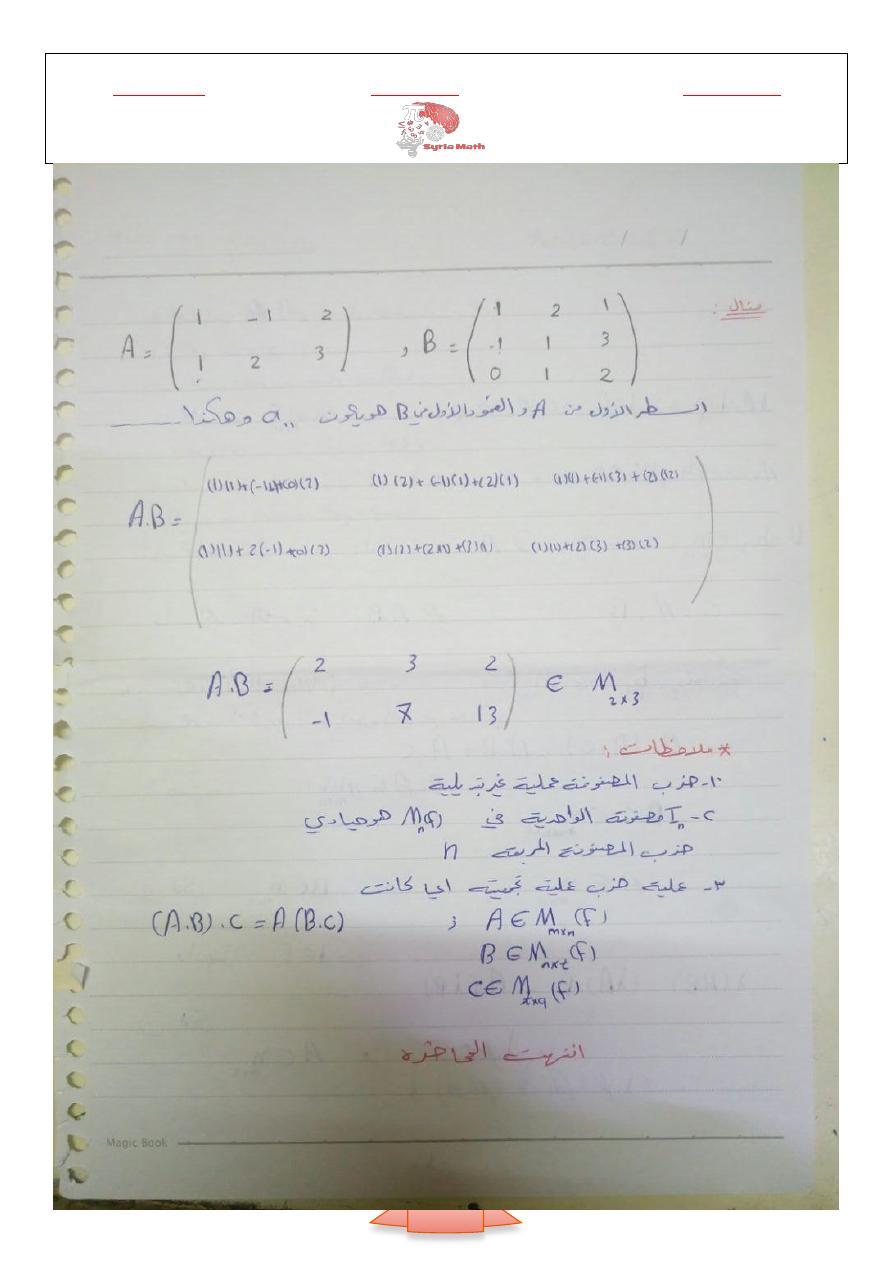 Syria Math
مثال :
A = ( 1 -1 2 ; 1 2 3 ) , B = ( 1 2 1 ; -1 1 3 ; 0 1 2 )
السطر الأول من A والعمود الأول من B هو يكون a₁₁ وهكذا
(1)(1)+(-1)(-1)+(0)(2) (1)(2)+(-1)(1)+(2)(1) (1)(1)+(-1)(3)+(2)(2)
A.B =
(1)(1)+2(-1)+(0)(3) (1)(2)+(2)(1)+(3)(1) (1)(1)+(2)(3)+(3)(2)
A.B = ( 2 3 2 ; -1 7 13 ) ∈ M2×3
* ملاحظات :
١- ضرب المصفوفة عملية غير تبديلية
٢- In مصفوفة الواحدية في Mn(F) هو حيادي
ضرب المصفوفة المربعة n
٣- علية ضرب علية تجميعية اياً كانت
(A.B).C = A(B.C) ; A ∈ Mm×n(F)
B ∈ Mn×t(F)
C ∈ Mt×q(F)
انتهت المحاضرة
Magic Book